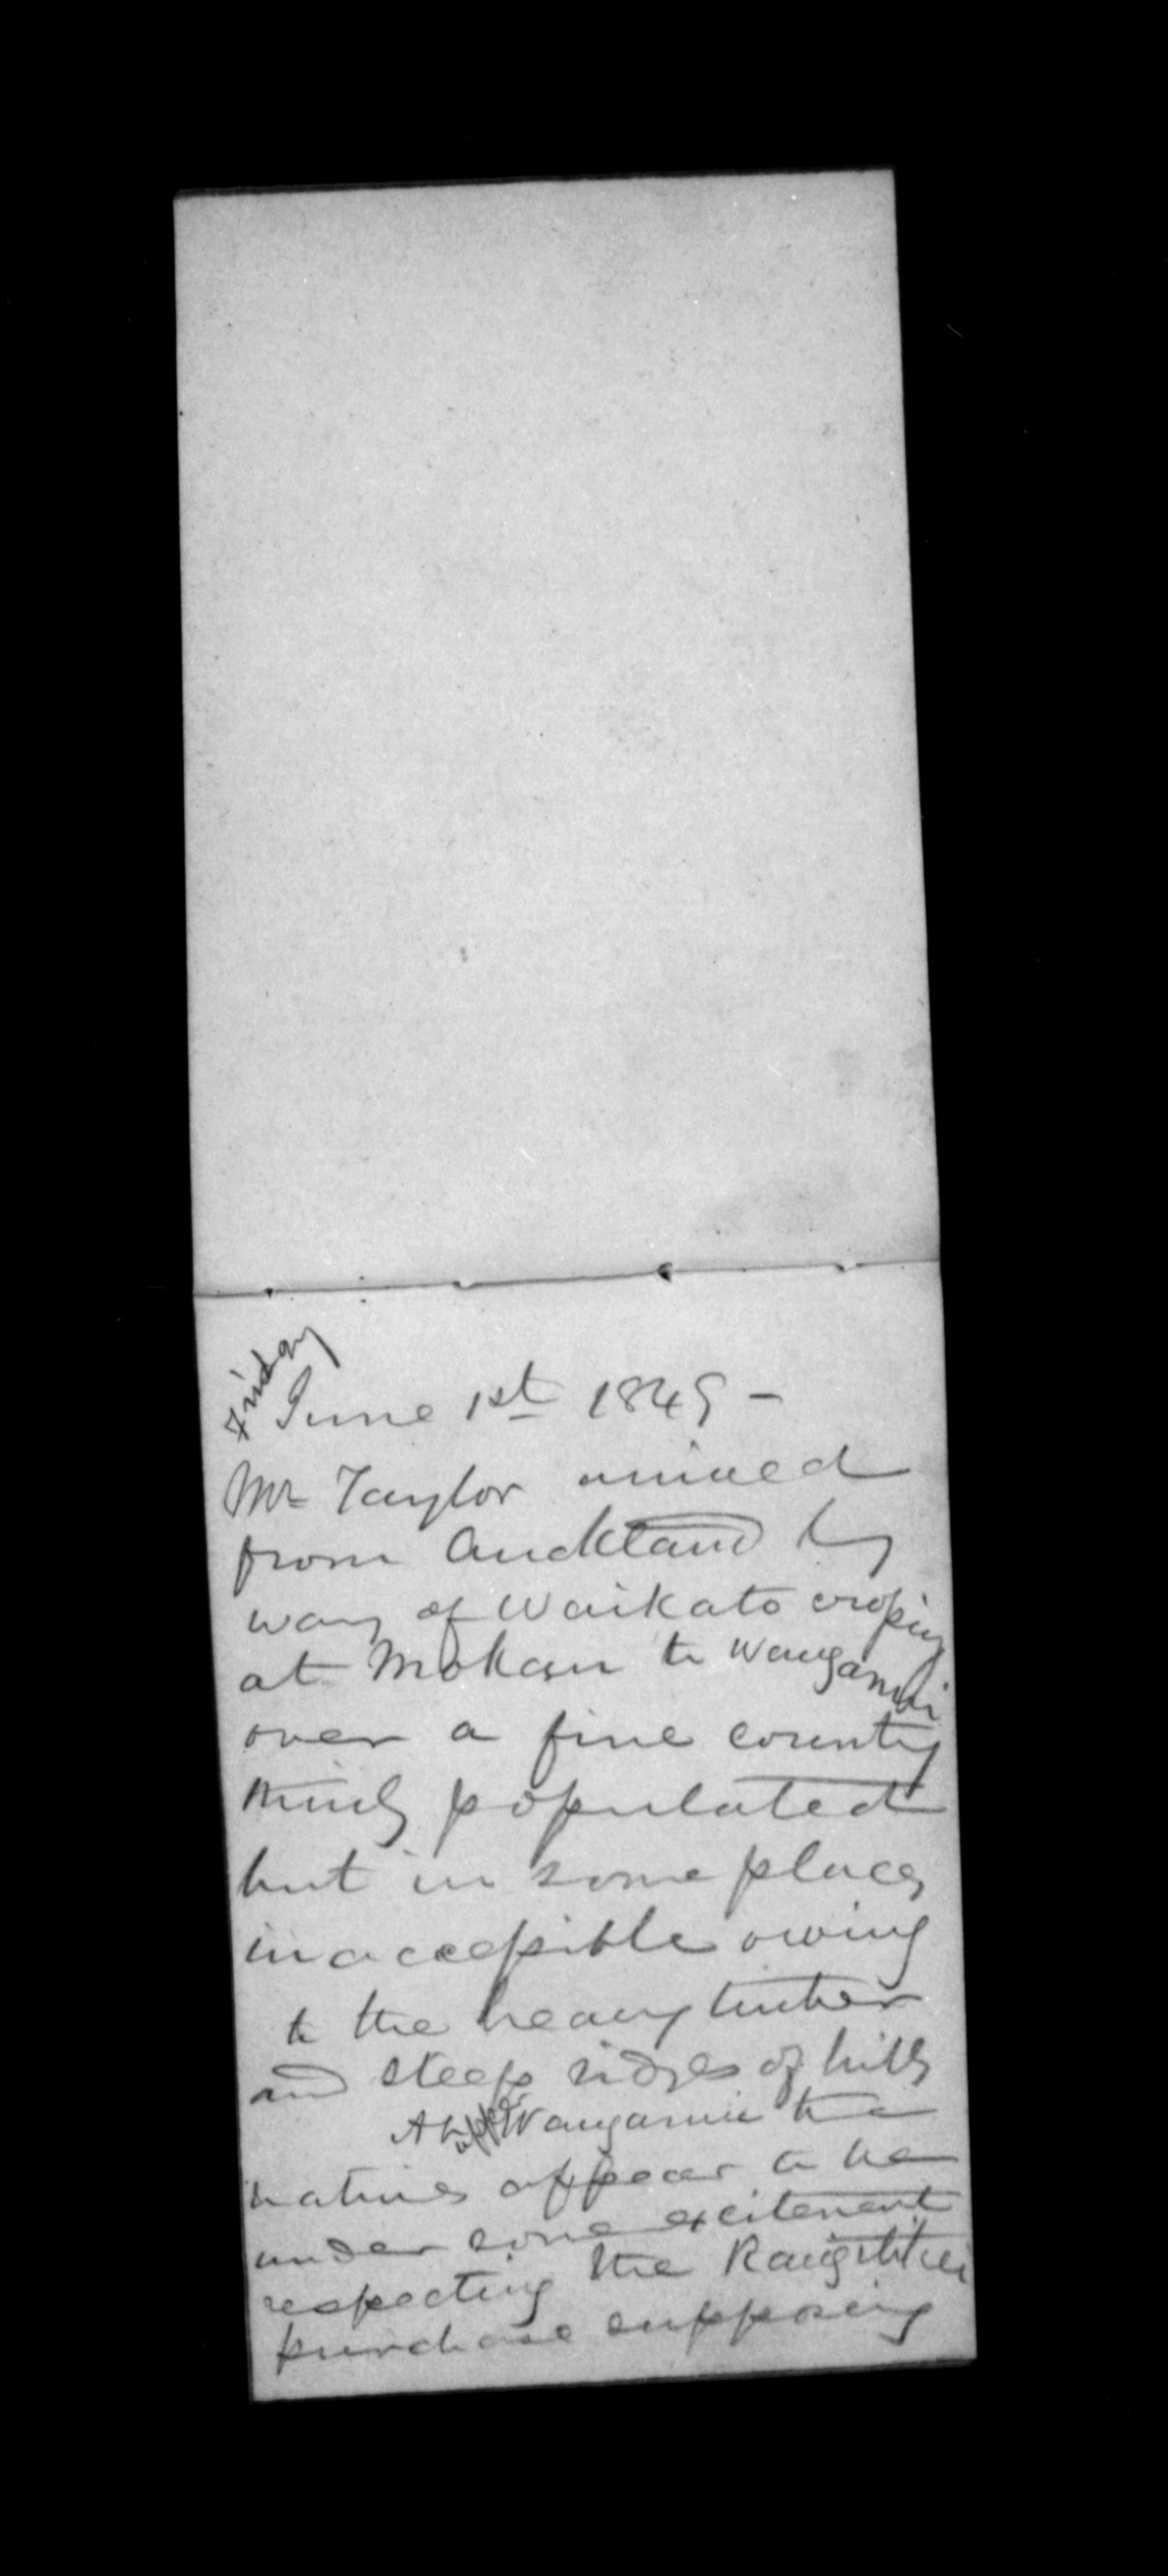 Friday
June 1st 1849 -
Mr Taylor arrived
from Auckland by
way of Waikato crossing
at Mokau to Wanganui
over a fine country
thinly populated
but in some places
inaccessible owing
to the heavy timber
and steep ridges of hills
At Wanganui the
natives appear to be
under some excitement
respecting the Rangitikei
purchase supposing